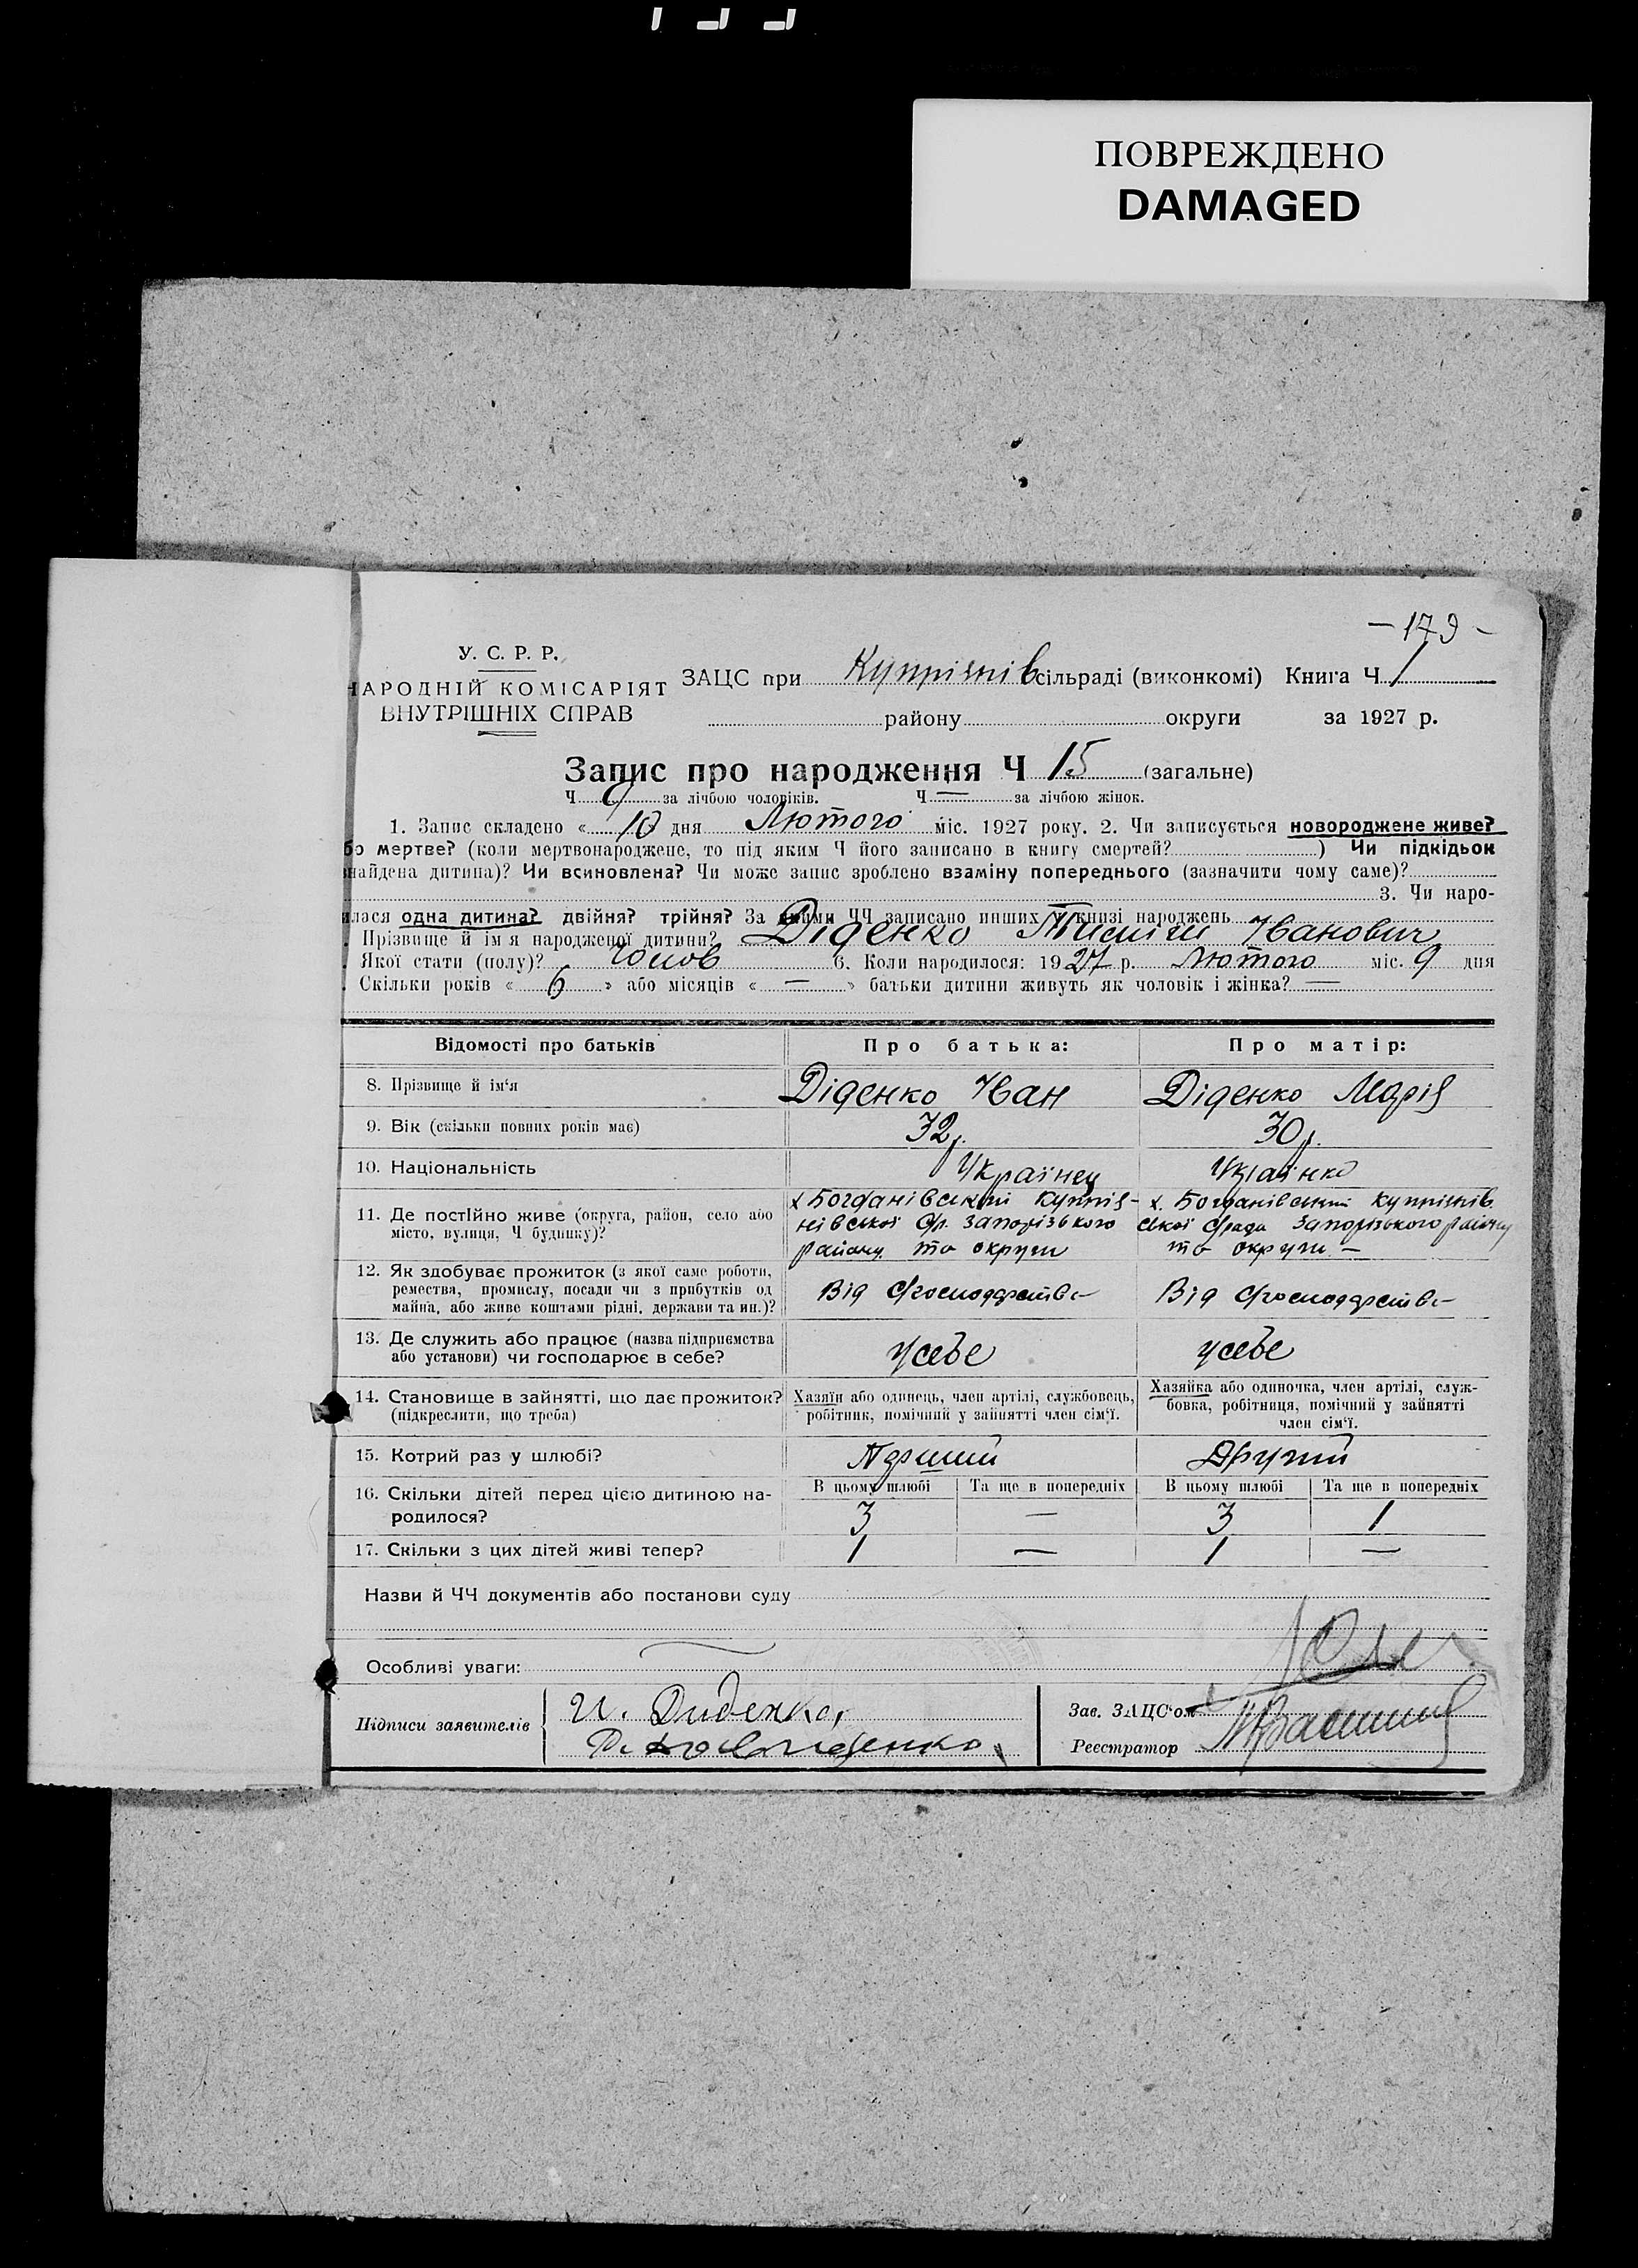 ПОВРЕЖДЕНО
DAMAGED
– 179 –
У. С. Р. Р.
НАРОДНІЙ КОМІСАРІЯТ
ВНУТРІШНІХ СПРАВ
ЗАЦС при Купріянів сільраді (виконкомі) Книга Ч 1
району округи за 1927 р.
Запис про народження Ч 15 (загальне)
Ч 9 за лічбою чоловіків. Ч — за лічбою жінок.
1. Запис складено « 10 дня Лютого міс. 1927 року. 2. Чи записується новороджене живе?
бо мертве? (коли мертвонароджене, то під яким Ч його записано в книгу смертей? ) Чи підкідьок
знайдена дитина)? Чи всиновлена? Чи може запис зроблено взаміну попереднього (зазначити чому саме)?
3. Чи наро-
илася одна дитина? двійня? трійня? За якими ЧЧ записано инших у книзі народжень
Прізвище й ім'я народженої дитини? Діденко Іванович
Якої стати (полу)? Чолов 6. Коли народилося: 1927 р. Лютого міс. 9 дня
Скільки років « 6 » або місяців « — » батьки дитини живуть як чоловік і жінка? —
Відомості про батьків
Про батька:
Про матір:
8. Прізвище й ім'я
Діденко Іван
Діденко Марія
9. Вік (скільки повних років має)
32 р.
30 р.
10. Національність
Українец
Українка
11. Де постійно живе (округа, район, село або
місто, вулиця, Ч будинку)?
х Богданівський Купрія-
нівської с/р. Запорізького
району та округи
х. Богданівський Купріянів
ської с/ради Запорізького району
та округи —
12. Як здобуває прожиток (з якої саме роботи,
ремества, промислу, посади чи з прибутків од
майна, або живе коштами рідні, держави та ин.)?
Від с/господарства
Від с/господарства
13. Де служить або працює (назва підприємства
або установи) чи господарює в себе?
у себе
у себе
14. Становище в зайнятті, що дає прожиток?
(підкреслити, що треба)
Хазяїн або одинець, член артілі, службовець,
робітник, помічний у зайнятті член сім'ї.
Хазяйка або одиночка, член артілі, служ-
бовка, робітниця, помічний у зайнятті
член сім'ї.
15. Котрий раз у шлюбі?
Перший
Другий
16. Скільки дітей перед цією дитиною на-
родилося?
В цьому шлюбі Та ще в попередніх
В цьому шлюбі Та ще в попередніх
3 —
3 1
17. Скільки з цих дітей живі тепер?
1 —
1 —
Назви й ЧЧ документів або постанови суду
Особливі уваги:
Підписи заявителів
И. Диденко,
Зав. ЗАЦС'ом
Реєстратор